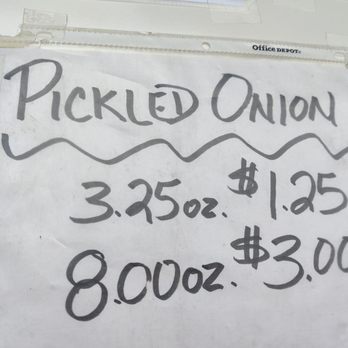 Office DEPOT
PICKLED ONION
3.25oz. $1.25
8.00oz. $3.00